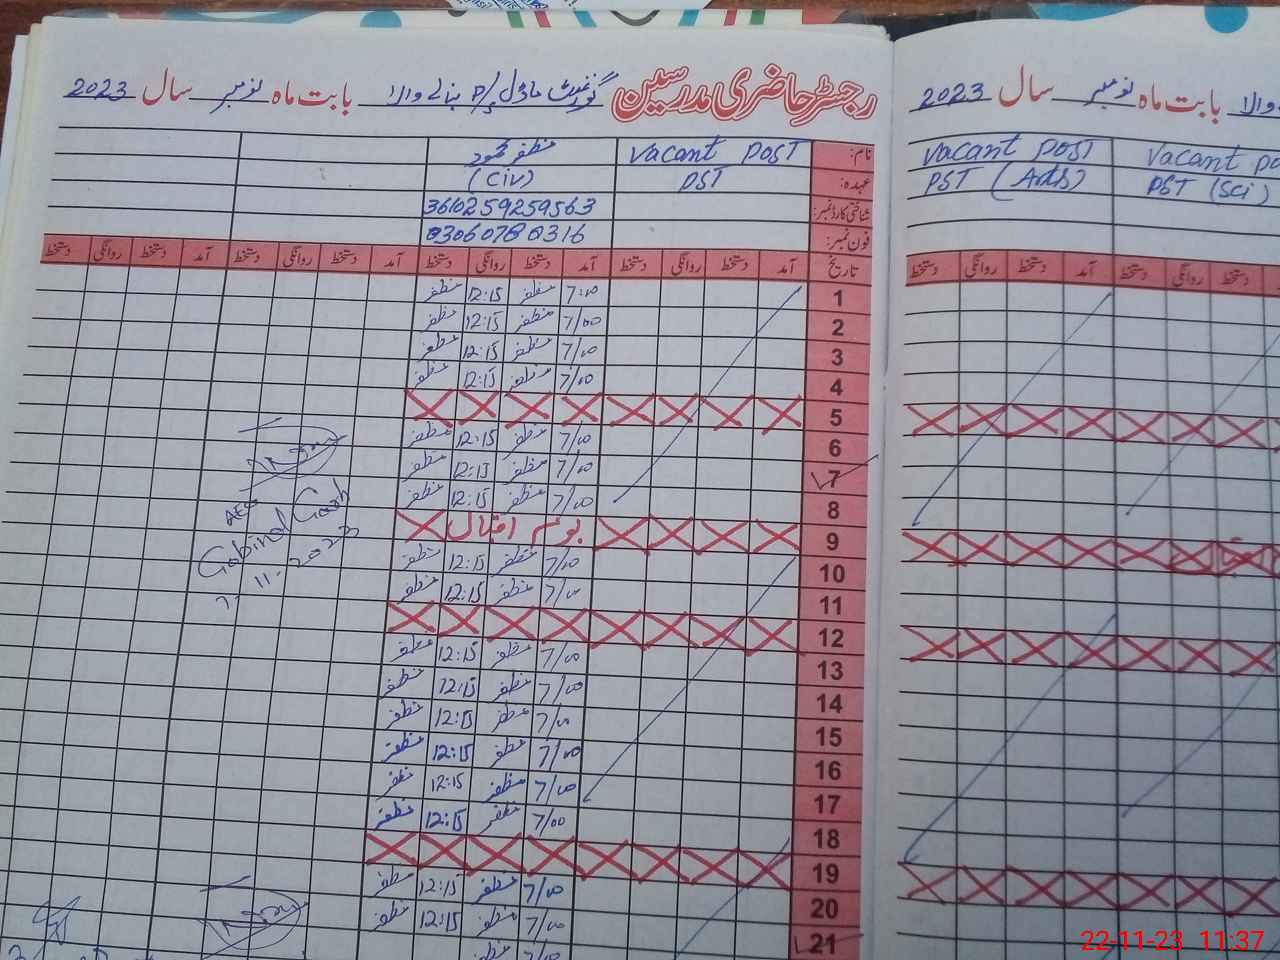 رجسٹر حاضری مدرسین گورنمنٹ ماڈل P/S بنالے والا بابت ماہ نومبر سال 2023
نام: Vacant POST مظفر محمود
عہدہ: PST (Civ)
شناختی کارڈ نمبر: 3610259259563
فون نمبر: 03060780316
تاریخ آمد دستخط روانگی دستخط آمد دستخط روانگی دستخط آمد دستخط روانگی دستخط آمد دستخط روانگی دستخط
1 7:00 مظفر 12:15 مظفر
2 7/00 مظفر 12:15 مظفر
3 7/00 مظفر 12:15 مظفر
4 7/00 مظفر 12:15 مظفر
5
6 7/00 مظفر 12:15 مظفر
7 7/00 مظفر 12:15 مظفر
8 7/00 مظفر 12:15 مظفر
9 یوم اقبال
10 7/00 مظفر 12:15 مظفر
11 7/00 مظفر 12:15 مظفر
12
13 7/00 مظفر 12:15 مظفر
14 7/00 مظفر 12:15 مظفر
15 7/00 مظفر 12:15 مظفر
16 7/00 مظفر 12:15 مظفر
17 7/00 مظفر 12:15 مظفر
18 7/00 مظفر 12:15 مظفر
19
20 7/00 مظفر 12:15 مظفر
21 7/00 مظفر 12:15 مظفر
مظفر 7/00
AEO
7-11-2023
والا بابت ماہ نومبر سال 2023
Vacant PO Vacant POST
PST (Sci) PST (Arts)
دستخط روانگی دستخط آمد دستخط روانگی دستخط
22-11-23 11:37